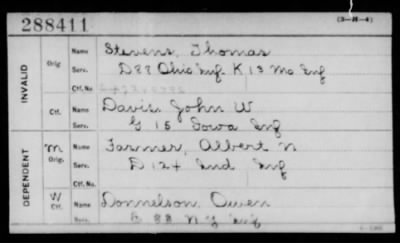 288411
(3—H—4)
INVALID
Orig. Name Stevens, Thomas
Serv. D 88 Ohio Inf. K 13 Mo Inf
Ctf. No.
Ctf. Name Davis, John W
Serv. G 15 Iowa Inf
DEPENDENT
M Orig. Name Farmer, Albert N
Serv. D 124 Ind Inf
Ctf. No.
W Ctf. Name Donnelson, Owen
Serv. 88 N Y Inf